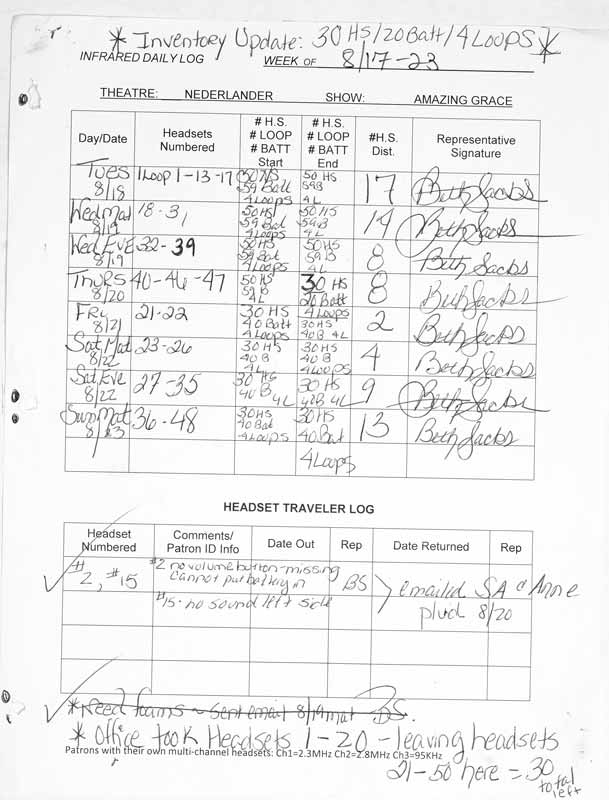 * Inventory Update: 30 HS/20Batt/4 Loops *
INFRARED DAILY LOG WEEK OF 8/17-23
THEATRE: NEDERLANDER SHOW: AMAZING GRACE
Day/Date Headsets Numbered # H.S. # LOOP # BATT Start # H.S. # LOOP # BATT End #H.S. Dist. Representative Signature
Tues 8/18 1Loop 1-13-17 50 HS 59 Batt 4 Loops 50 HS 59B 4L 17 Beth Sacks
Wed Mat 8/19 18-31 50HS 59 Bat 4 Loops 50 HS 59B 4L 14 Beth Sacks
Wed Eve 8/19 32-39 50HS 59 Bat 4 Loops 50HS 59 B 4L 8 Beth Sacks
Thurs 8/20 40-46-47 50 HS 59 B 4L 30 HS 20 Batt 4 Loops 8 Beth Sacks
Fri 8/21 21-22 30 HS 40 Batt 4 Loops 30 HS 40 B 4L 2 Beth Sacks
Sat Mat 8/22 23-26 30 HS 40 B 4L 30 HS 40 B 4 Loops 4 Beth Sacks
Sat Eve 8/22 27-35 30 HS 40B 4L 30 HS 40B 4L 9 Beth Sacks
Sun Mat 8/23 36-48 30HS 40 Bat 4 Loops 30HS 40 Bat 4 Loops 13 Beth Sacks
HEADSET TRAVELER LOG
Headset Numbered Comments/ Patron ID Info Date Out Rep Date Returned Rep
#2, #15 #2 no volume button-missing cannot put battery in BS emailed SA & Anne
#15-no sound left side plvd 8/20
* Need foams ~ sent email 8/19 mat BS.
* Office took Headsets 1-20 - leaving headsets
Patrons with their own multi-channel headsets: Ch1=2.3MHz Ch2=2.8MHz Ch3=95KHz
21-50 here = 30 total left